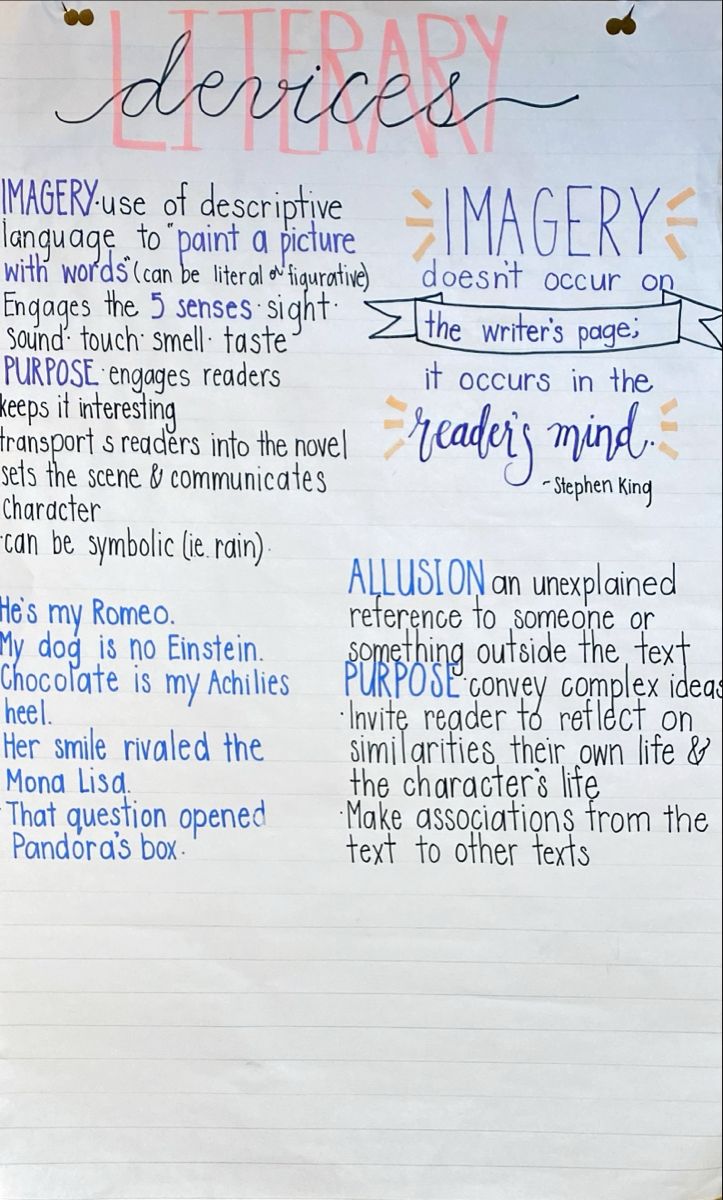 LITERARY
devices
IMAGERY·use of descriptive
language to "paint a picture
with words" (can be literal or figurative)
Engages the 5 senses·sight·
sound·touch·smell·taste
PURPOSE·engages readers
keeps it interesting
transports readers into the novel
sets the scene & communicates
character
·can be symbolic (ie. rain)·
IMAGERY
doesn't occur on
the writer's page;
it occurs in the
reader's mind.
~Stephen King
He's my Romeo.
My dog is no Einstein.
Chocolate is my Achilies
heel.
Her smile rivaled the
Mona Lisa.
·That question opened
Pandora's box·
ALLUSION an unexplained
reference to someone or
something outside the text
PURPOSE·convey complex ideas
·Invite reader to reflect on
similarities their own life &
the character's life
·Make associations from the
text to other texts